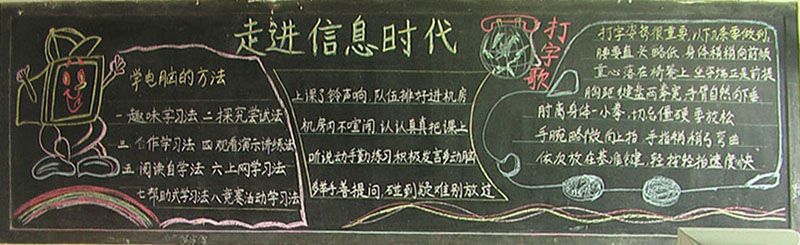 走进信息时代
学电脑的方法
一趣味学习法 二探究尝试法
三合作学习法 四观看演示讲练法
五阅读自学法 六上网学习法
七帮助式学习法 八竞赛活动学习法
上课了铃声响 队伍排好进机房
机房内不喧闹 认认真真把课上
听说动手勤练习 积极发言多动脑
多举手善提问 碰到疑难别放过
打字歌
打字姿势很重要,以下几条要做到,
腰要直头略低 身体稍稍向前倾
重心落在椅垫上 坐字端正是前提
胸距键盘两拳宽 手臂自然向下垂
肘离身体一小拳,切忌僵硬要放松
手腕略微向上抬 手指稍稍弯曲
依次放在基准键,轻按轻抬速度快